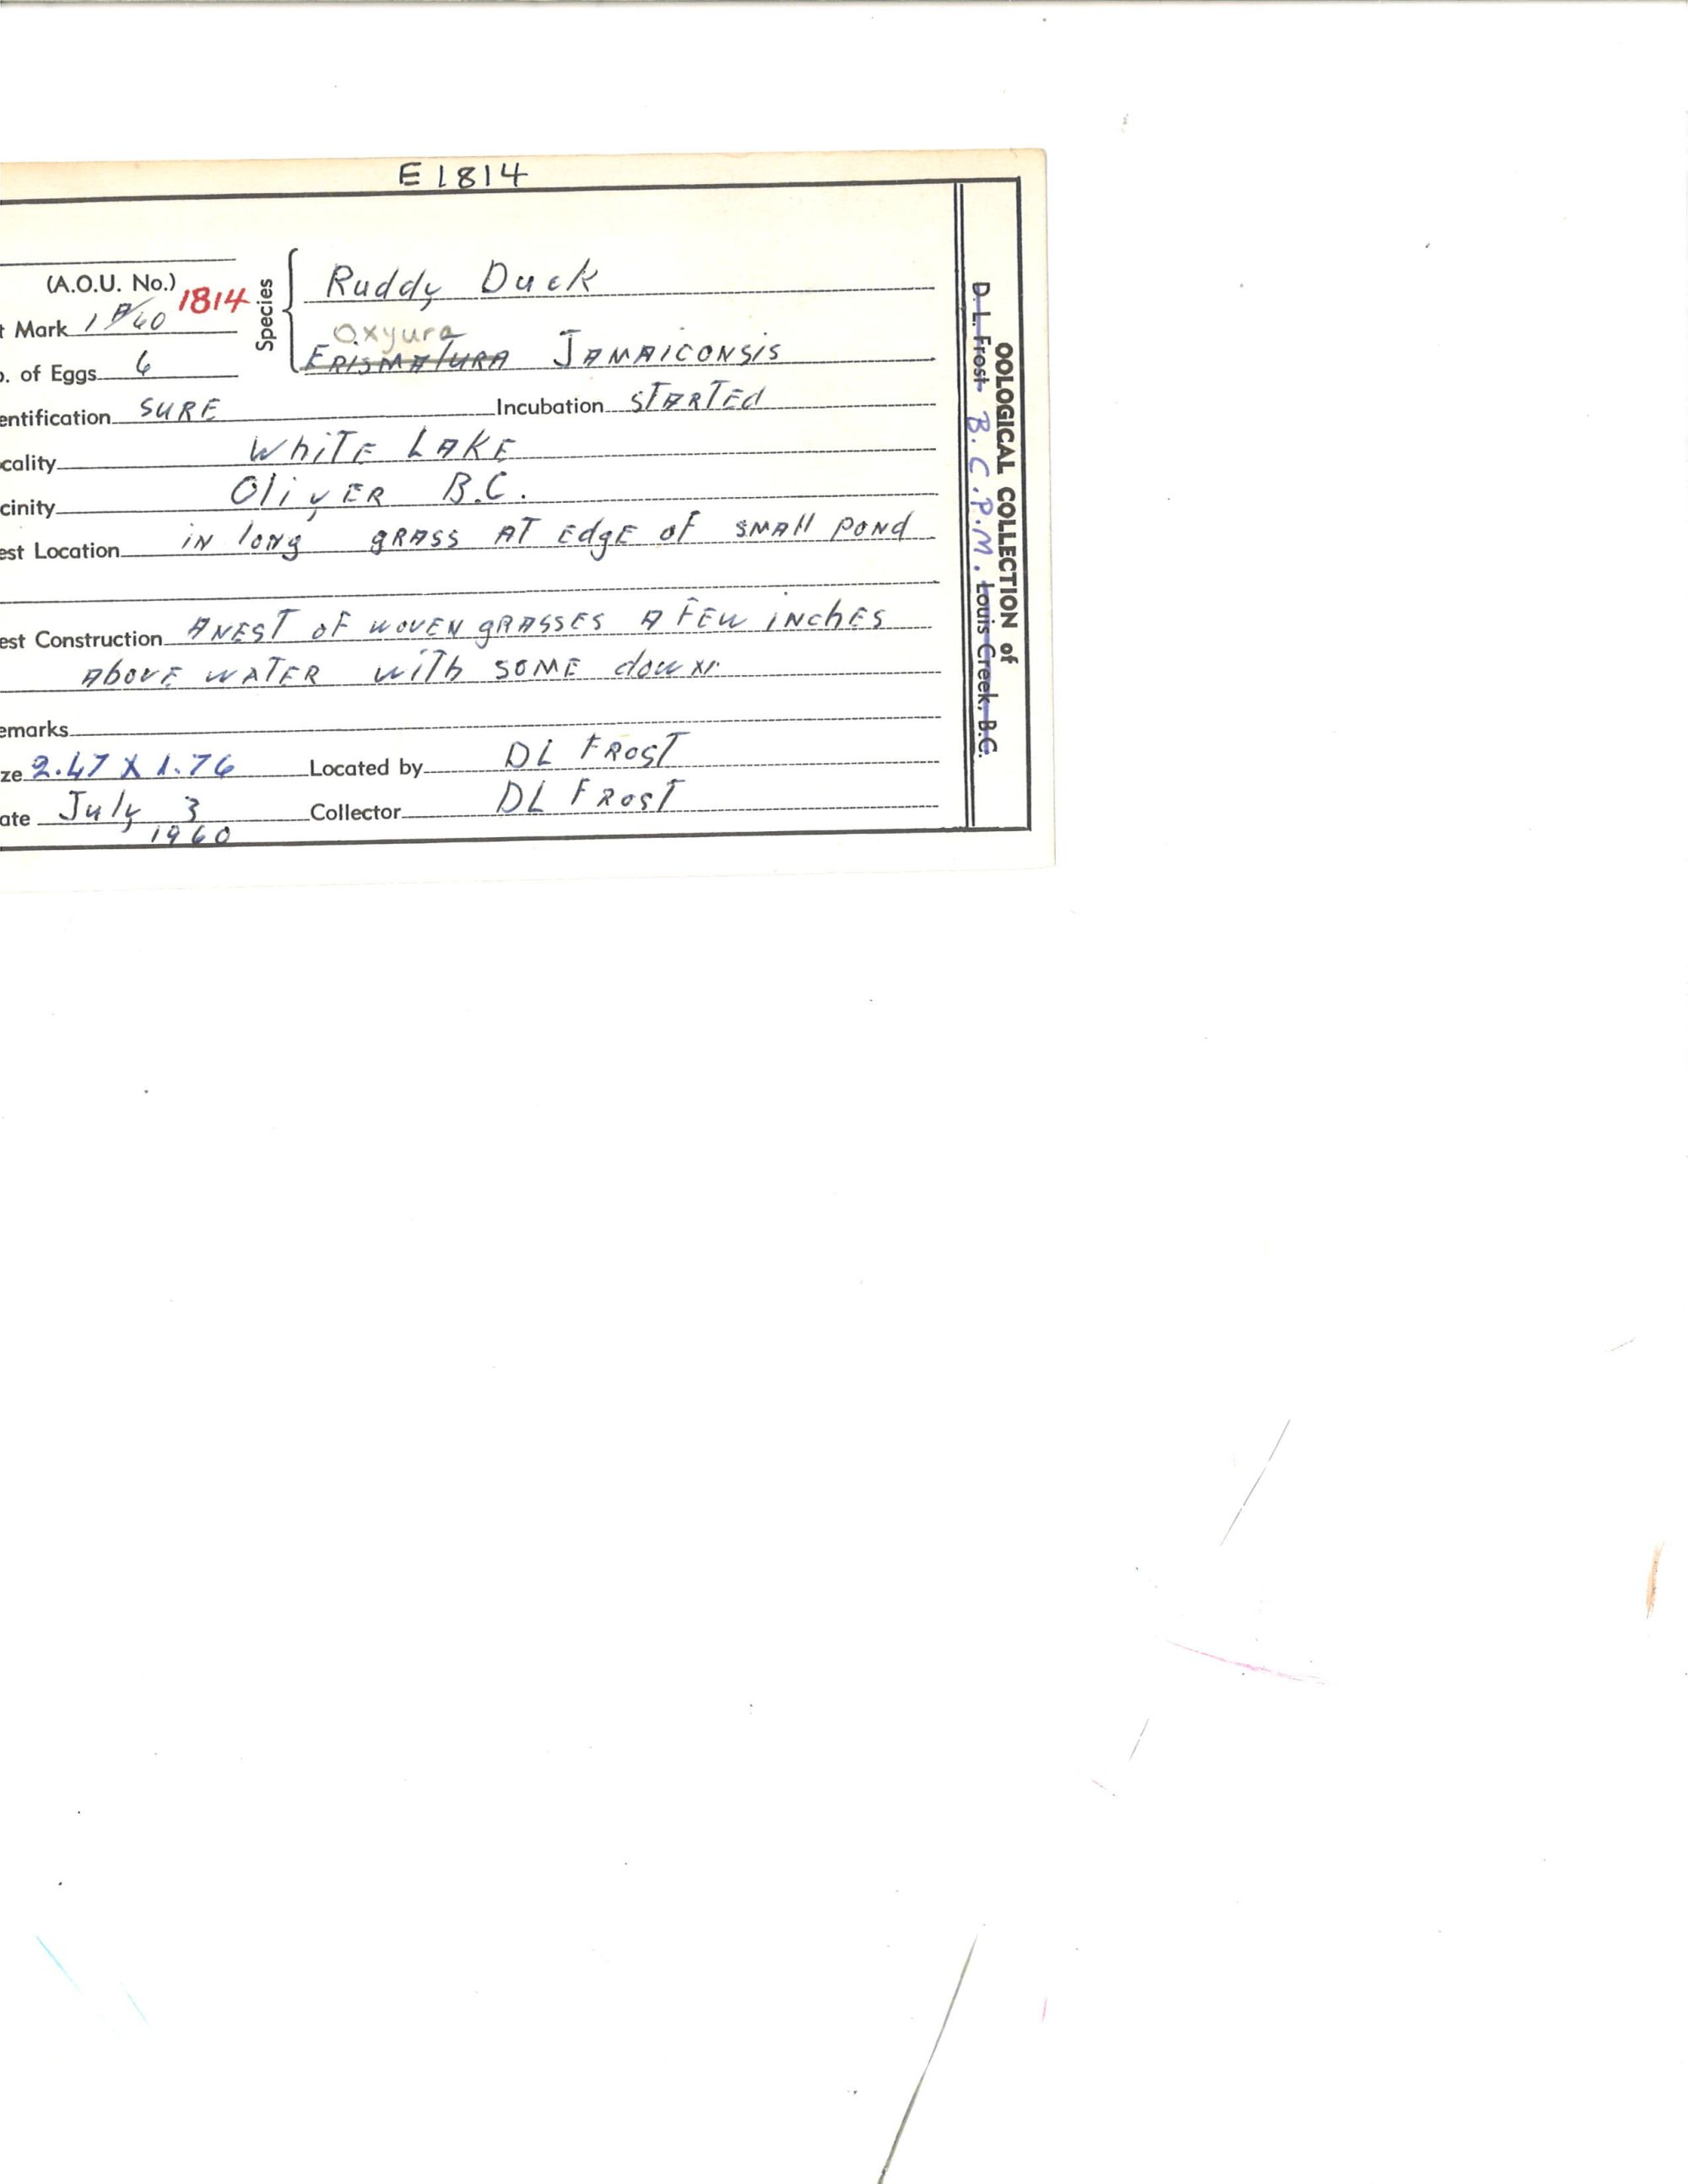 E 1814
(A.O.U. No.) 1814
t Mark 1 /60
o. of Eggs 6
Species
Ruddy Duck
Oxyura
ERISMATURA JAMAICONSIS
entification SURE Incubation STARTEd
cality WhiTE LAKE
cinity OliVER B.C.
est Location iN loNg gRASS AT EdgE oF SMAll PONd
est Construction A NEST OF WOVEN gRASSES A FEW iNChES
AbovE WATER WiTh SOME dowN
emarks
ze 2.47 X 1.76 Located by DL FROST
ate July 3 Collector DL FROST
1960
OOLOGICAL COLLECTION of
D. L. Frost B.C.P.M. Louis Creek, B.C.